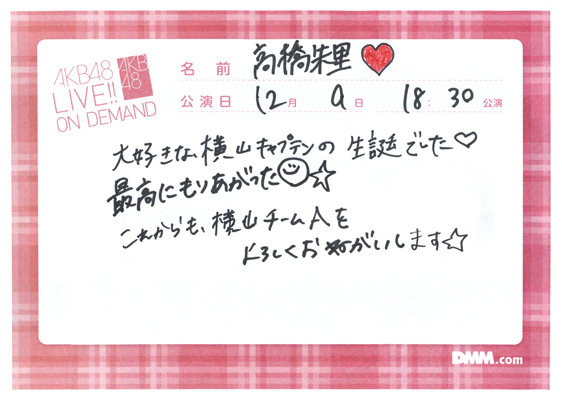 AKB48
LIVE!!
ON DEMAND
AKB
48
名前 高橋朱里
公演日 12月 9日 18:30公演
大好きな横山キャプテンの生誕でした♡
最高にもりあがった☺☆
これからも、横山チームAを
よろしくお願いします☆
DMM.com